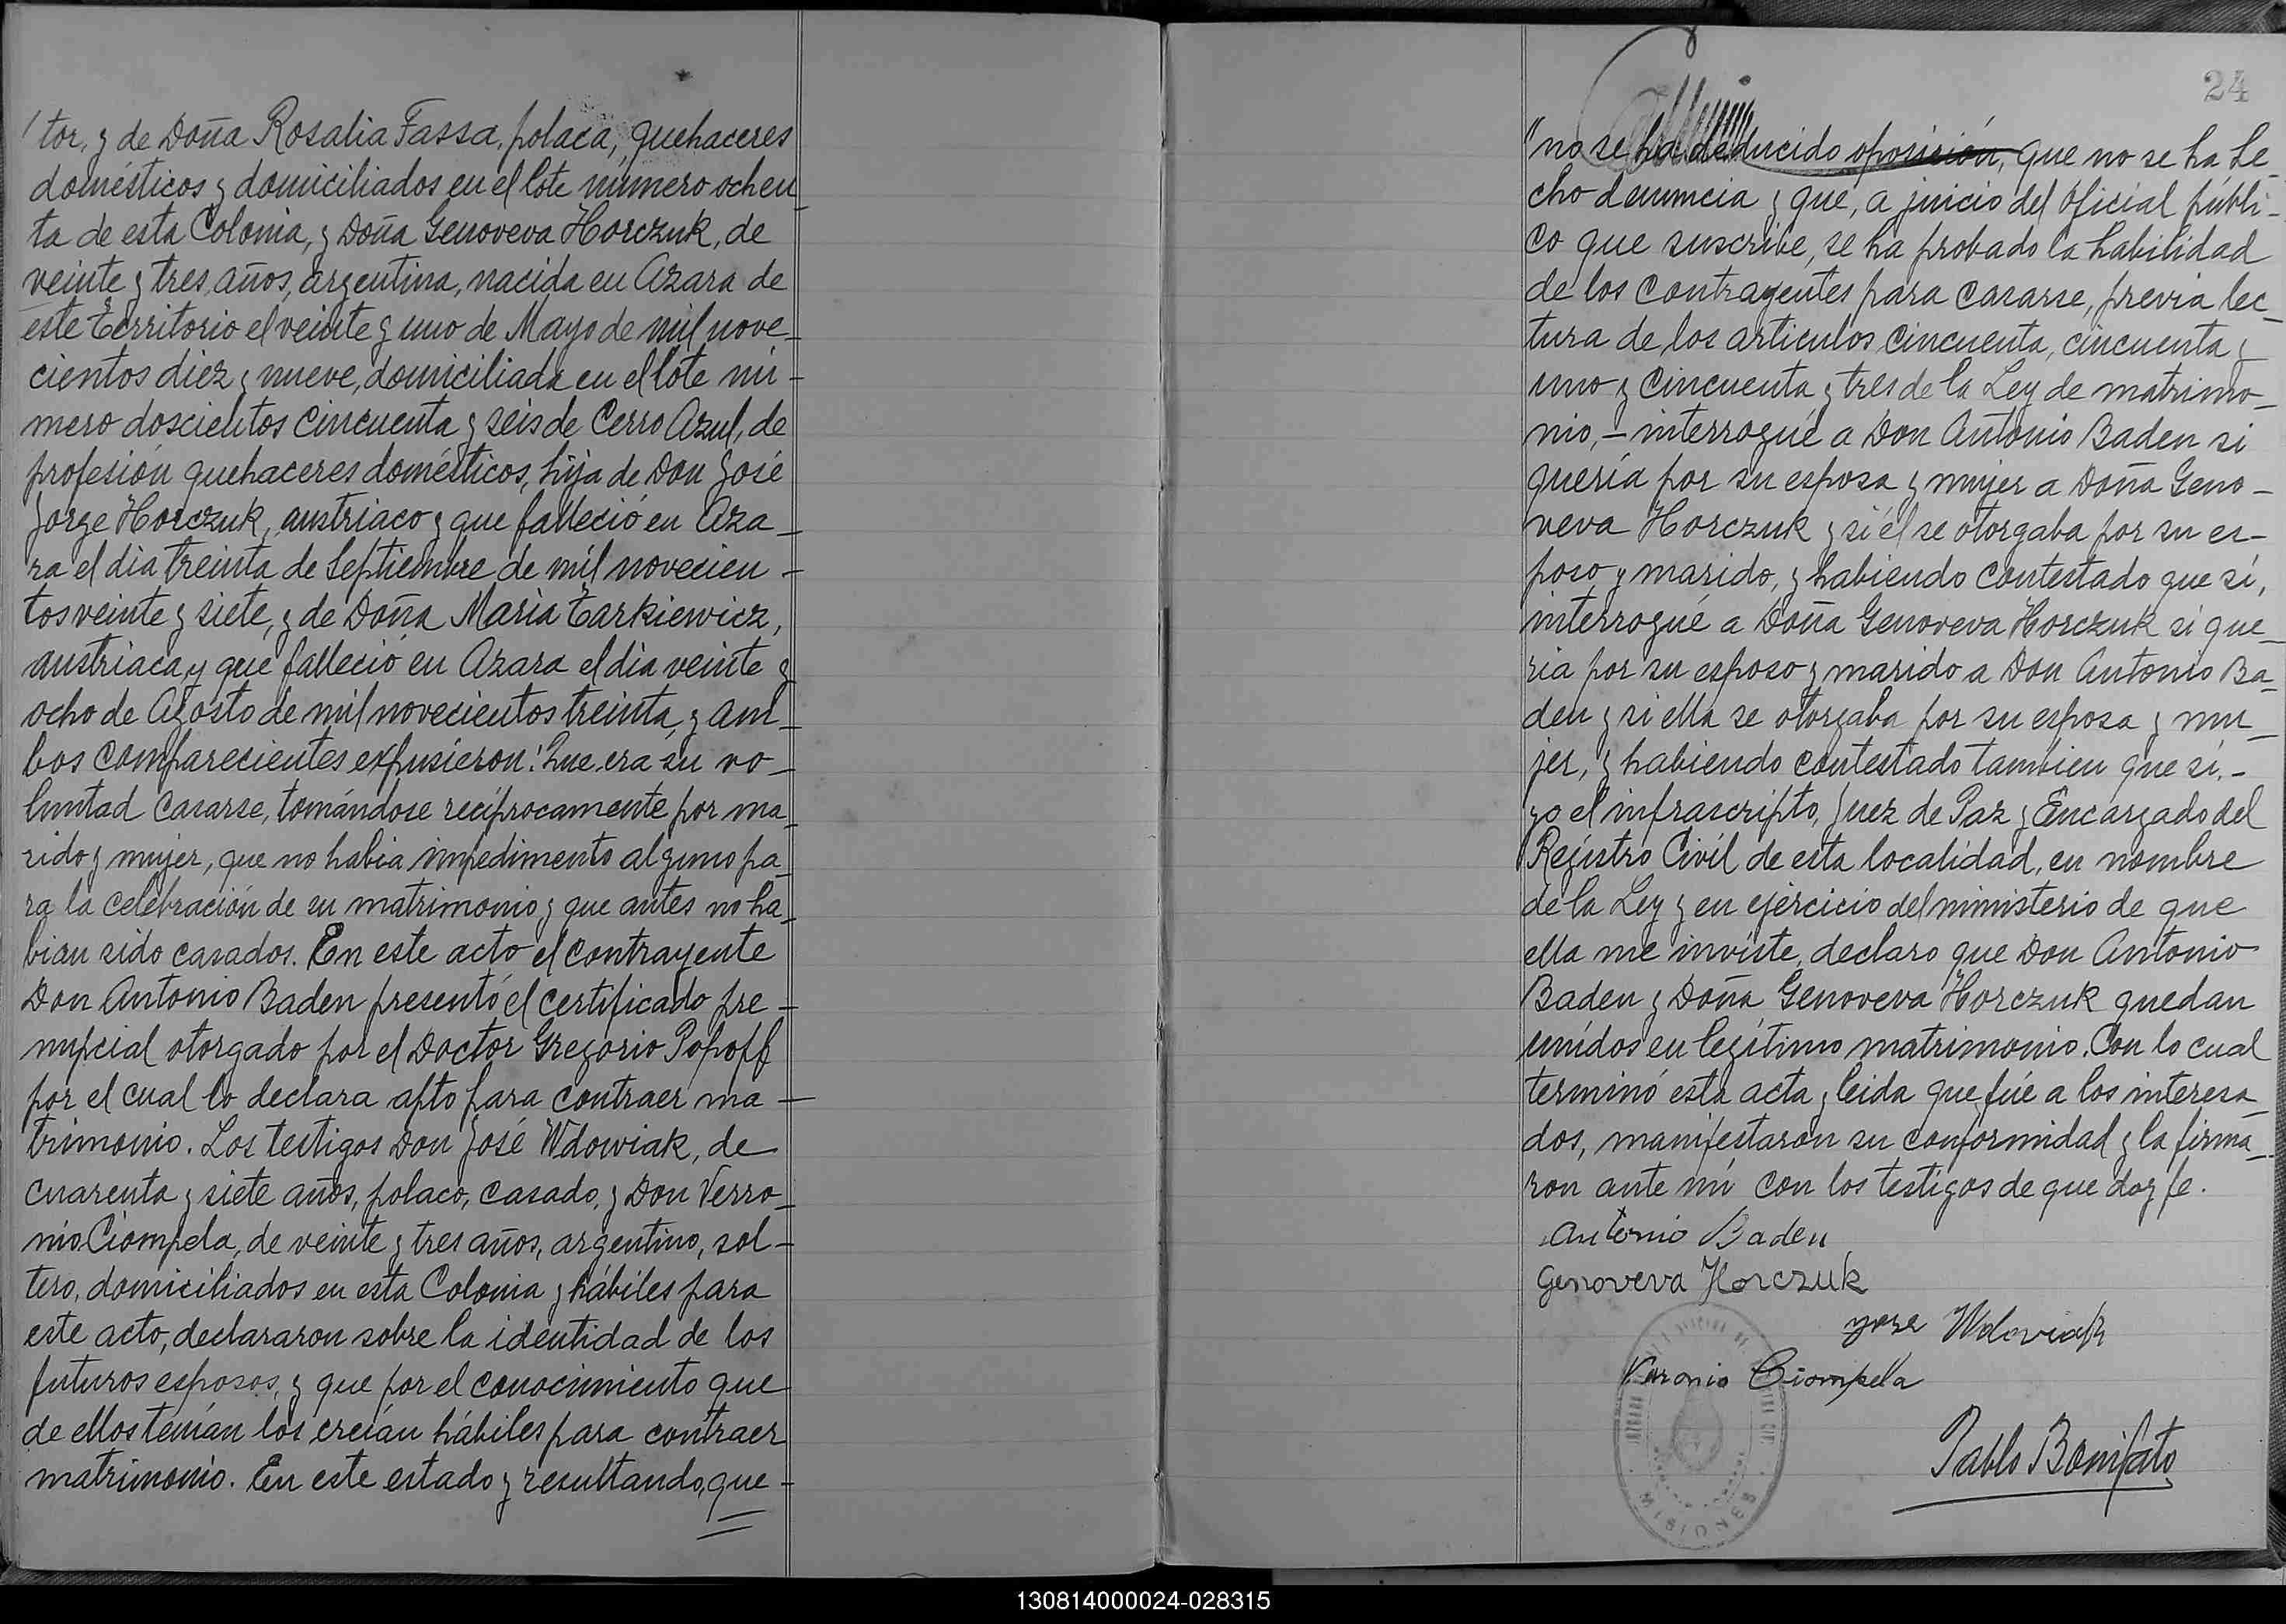 tor, y de Doña Rosalia Fassa, polaca, quehaceres
domésticos y domiciliados en el lote número ochen_
ta de esta Colonia, y Doña Genoveva Horczuk, de
veinte y tres años, argentina, nacida en Azara de
este Territorio el veinte y uno de Mayo de mil nove_
cientos diez y nueve, domiciliada en el lote nú-
mero doscientos cincuenta y seis de Cerro Azul, de
profesión quehaceres domésticos, hija de Don José
Jorge Horczuk, austriaco y que falleció en Aza_
ra el dia treinta de Septiembre de mil novecien-
tos veinte y siete, y de Doña Maria Tarkiewicz,
austriaca y que falleció en Azara el dia veinte y
ocho de Agosto de mil novecientos treinta, y am_
bos comparecientes expusieron: Que era su vo_
luntad casarse, tomándose recíprocamente por ma_
rido y mujer, que no habia impedimento alguno pa_
ra la celebración de su matrimonio y que antes no ha_
bian sido casados. En este acto el contrayente
Don Antonio Baden presentó el certificado pre-
nupcial otorgado por el Doctor Gregorio Popoff
por el cual lo declara apto para contraer ma-
trimonio. Los testigos Don José Wdowiak, de
cuarenta y siete años, polaco, casado, y Don Verro_
nio Ciompela, de veinte y tres años, argentino, sol-
tero, domiciliados en esta Colonia y hábiles para
este acto, declararon sobre la identidad de los
futuros esposos, y que por el conocimiento que
de ellos tenían los creían hábiles para contraer
matrimonio. En este estado y resultando, que-
24
"no se ha deducido oposición, que no se ha he_
cho denuncia y que, a juicio del oficial públi-
co que suscribe, se ha probado la habilidad
de los contrayentes para casarse, previa lec_
tura de los articulos cincuenta, cincuenta y
uno y cincuenta y tres de la Ley de matrimo_
nio, - interrogué a Don Antonio Baden si
quería por su esposa y mujer a Doña Geno-
veva Horczuk y si él se otorgaba por su es-
poso y marido, y habiendo contestado que sí,
interrogué a Doña Genoveva Horczuk si que_
ria por su esposo y marido a Don Antonio Ba_
den y si ella se otorgaba por su esposa y mu_
jer, y habiendo contestado tambien que sí, -
yo el infrascripto, Juez de Paz y Encargado del
Registro Civil de esta localidad, en nombre
de la Ley y en ejercicio del ministerio de que
ella me inviste, declaro que Don Antonio
Baden y Doña Genoveva Horczuk quedan
unidos en legítimo matrimonio. Con lo cual
terminó esta acta y leida que fué a los interesa_
dos, manifestaron su conformidad y la firma_
ron ante mí con los testigos de que doy fe.
Antonio Baden
Genoveva Horczuk
Wdoviak
Varonio Ciompela
MISIONES
Pablo Bonifato
130814000024-028315